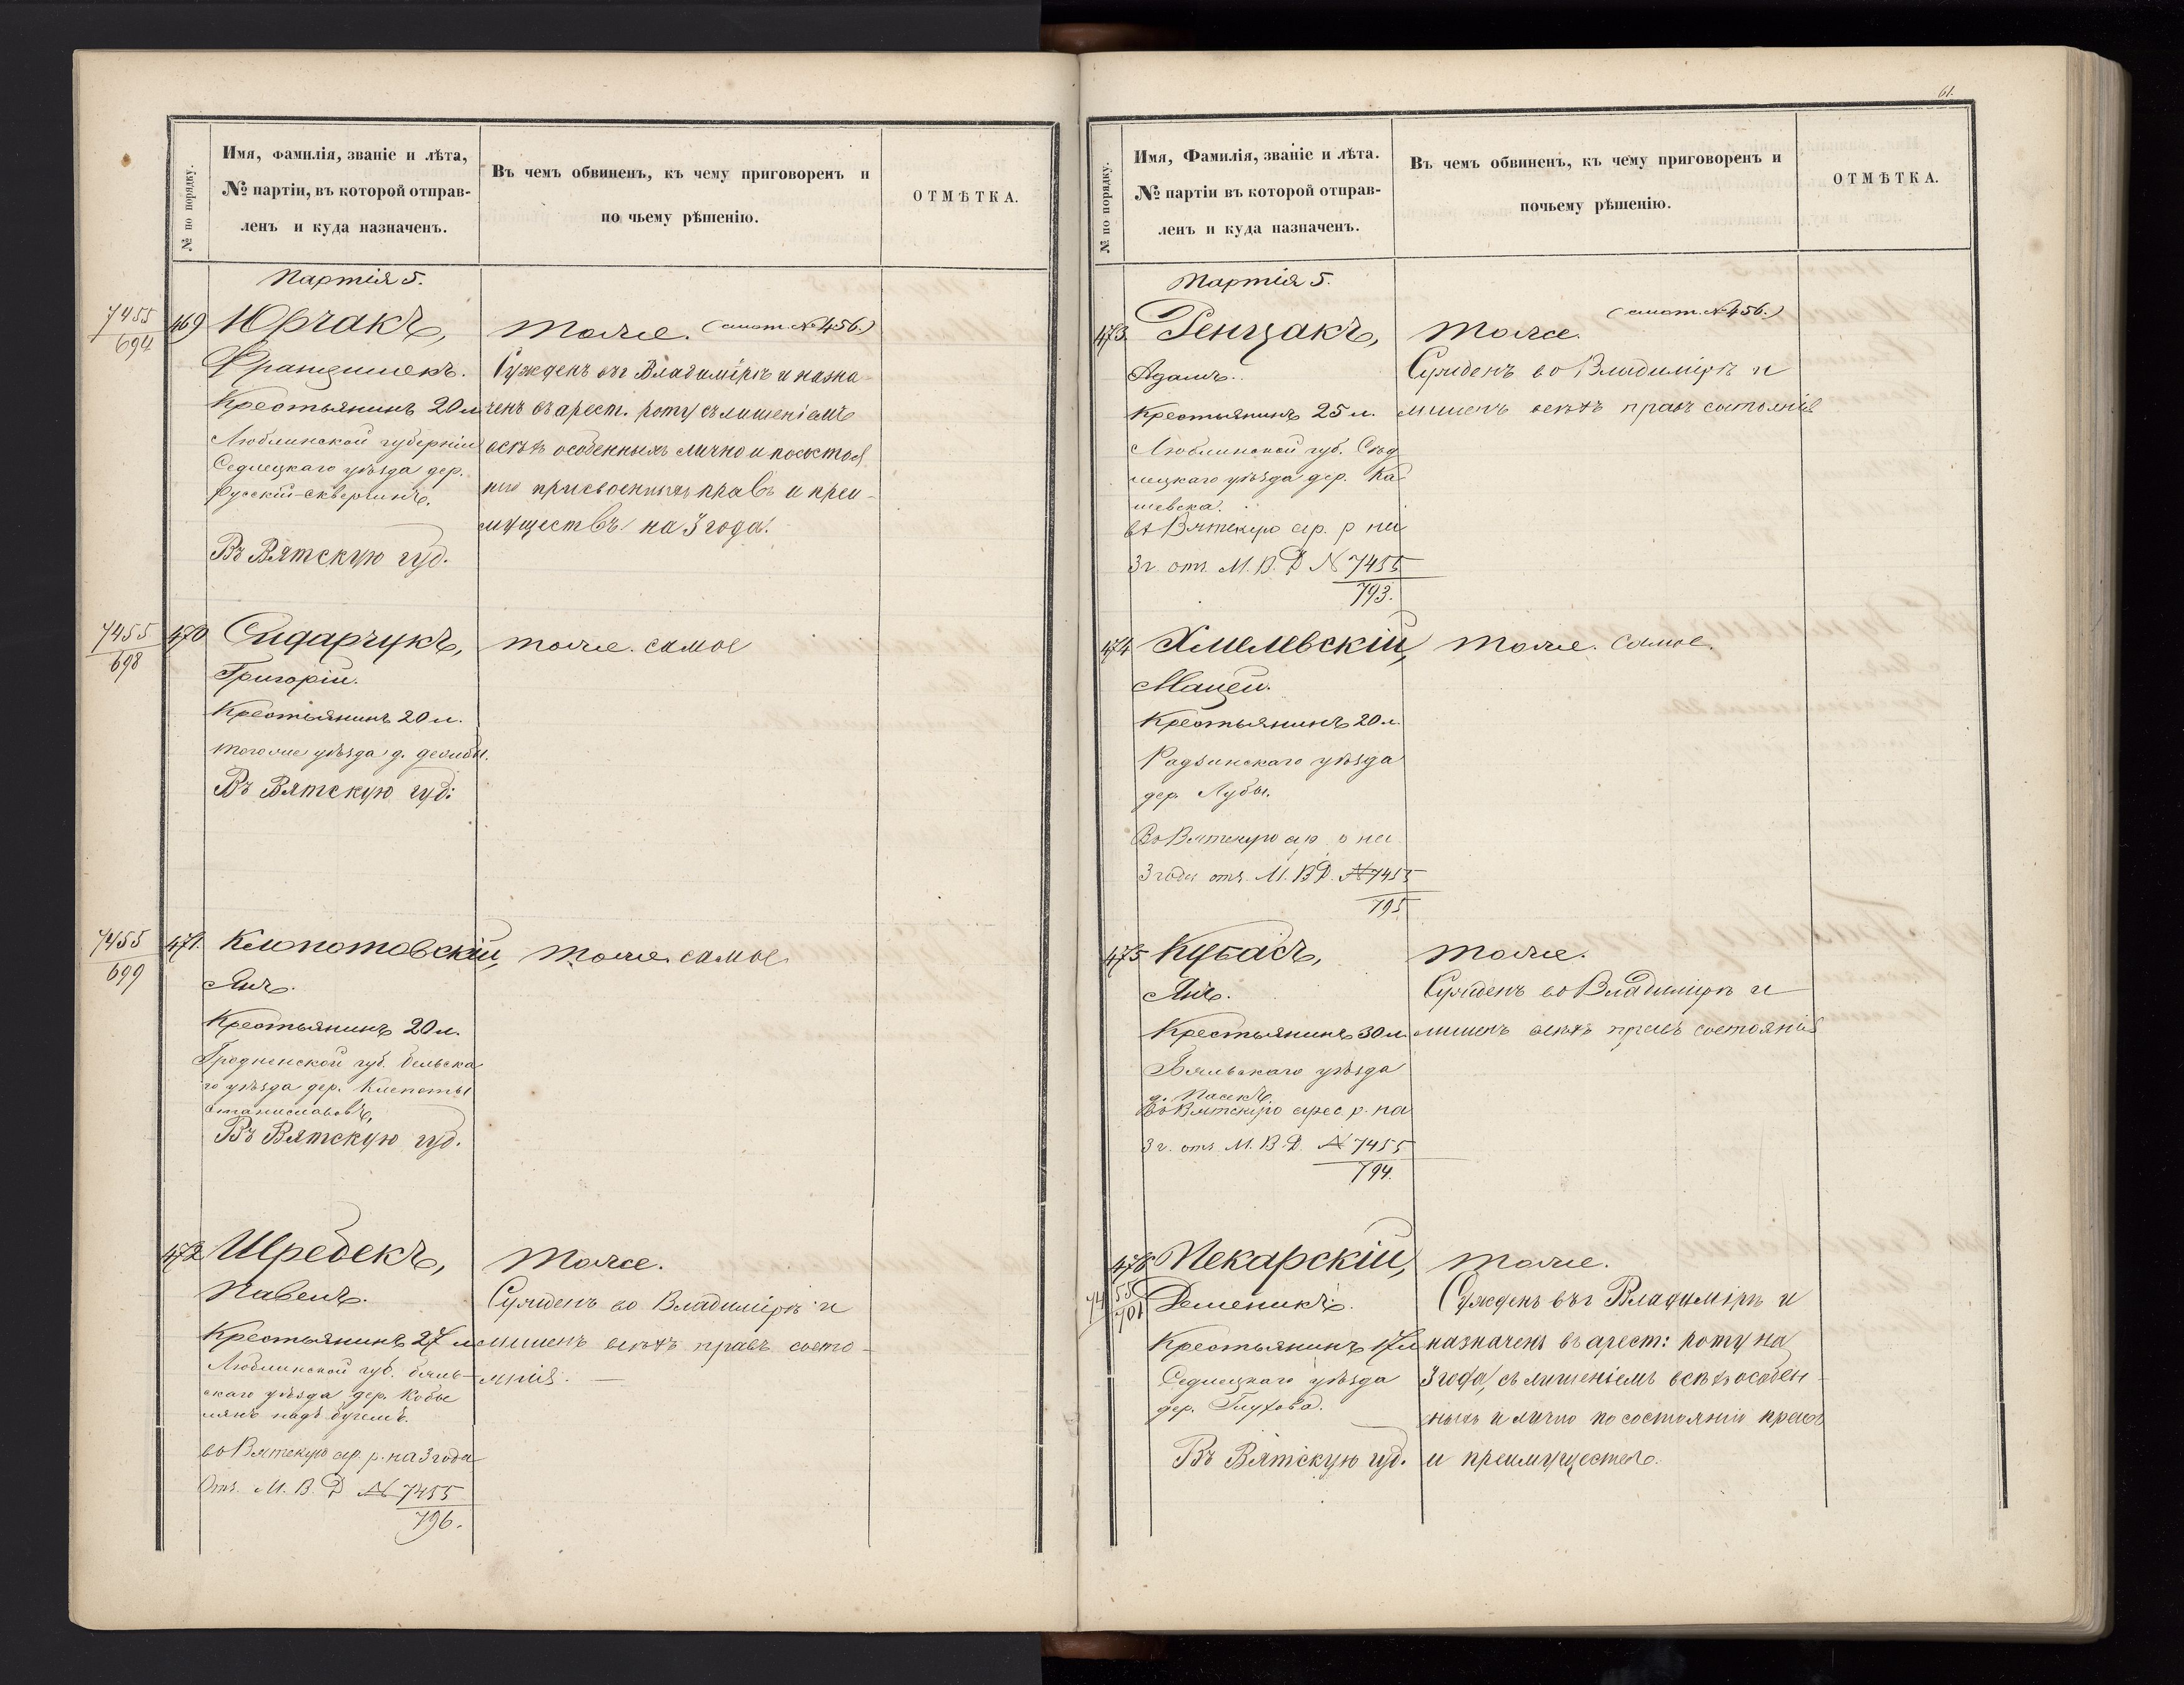 № по порядку.
Имя, фамилія, званіе и лѣта,
№ партіи, въ которой отправ-
ленъ и куда назначенъ.
Въ чемъ обвиненъ, къ чему приговоренъ и
по чьему рѣшенію.
ОТМѢТКА.
Партія 5.
7455
694
469
Юрчакъ,
Францишекъ.
Крестьянинъ 20 л.
Люблинской губерніи
Седлецкаго уѣзда дер.
Русскій-
Въ Вятскую губ.
Тоже. (смот. № 456.)
Сужденъ въ г Владимірѣ и назна-
ченъ въ арест. роту съ лишеніемъ
всѣхъ особенныхъ лично и по состоя
нію присвоенныхъ правъ и преи-
муществъ на 3 года.
7455
698
470
Сидарчукъ,
Григорій.
Крестьянинъ 20 л.
тогоже уѣзда д.
Въ Вятскую губ:
тоже. самое
7455
699
471.
Клопотовскій,
Янъ.
Крестьянинъ 20 л.
Гродненской губ. бельска
го уѣзда дер. Клепоты
станиславовъ,
Въ Вятскую губ.
тоже. самое.
472
Шребекъ,
Павелъ.
Крестьянинъ 27 л
Люблинской губ. бяль-
скаго уѣзда дер. Кобы
лянъ надъ бугемъ.
во Вятскую ар. р. на 3 года
Отн. М. В. Д № 7455
796.
Тоже.
Сужденъ во Владимірѣ и
лишенъ всѣхъ правъ состо-
янія. —
61.
№ по порядку.
Имя, Фамилія, званіе и лѣта.
№ партіи въ которой отправ-
ленъ и куда назначенъ.
Въ чемъ обвиненъ, къ чему приговоренъ и
почьему рѣшенію.
ОТМѢТКА.
Партія 5.
473.
Ренчакъ,
Адамъ.
Крестьянинъ 25 л.
Люблинской губ. Сѣд
лецкаго уѣзда дер. Ка
шевска.
въ Вятскую ар. р на
3 г. отн. М. В. Д № 7455
793.
(смот. № 456.)
Тоже.
Сужденъ во Владимірѣ и
лишенъ всѣхъ правъ состоянія
474
Хмелевскій,
Мацей.
Крестьянинъ 20 л.
Радзинскаго уѣзда
дер. Лубы.
Во Вятскую ар. р на
3 года отн. М. В. Д. № 7455
795
Тоже. самое.
475
Кубасъ,
Янъ.
Крестьянинъ 30 л.
Бяльскаго уѣзда
д.
Во Вятскую арес. р. на
3 г. отн. М. В. Д. № 7455
794.
Тоже.
Сужденъ во Владимірѣ и
лишенъ всѣхъ правъ состоянія
476
7455
701
Пекарскій,
Доменикъ.
Крестьянинъ 17 л
Седлецкаго уѣзда
дер. Глухова.
Въ Вятскую губ.
Тоже.
Сужденъ въ г Владимірѣ и
назначенъ въ арест: роту на
3 года, съ лишеніемъ всѣхъ особен-
ныхъ и лично по состоянію правъ
и преимуществъ.